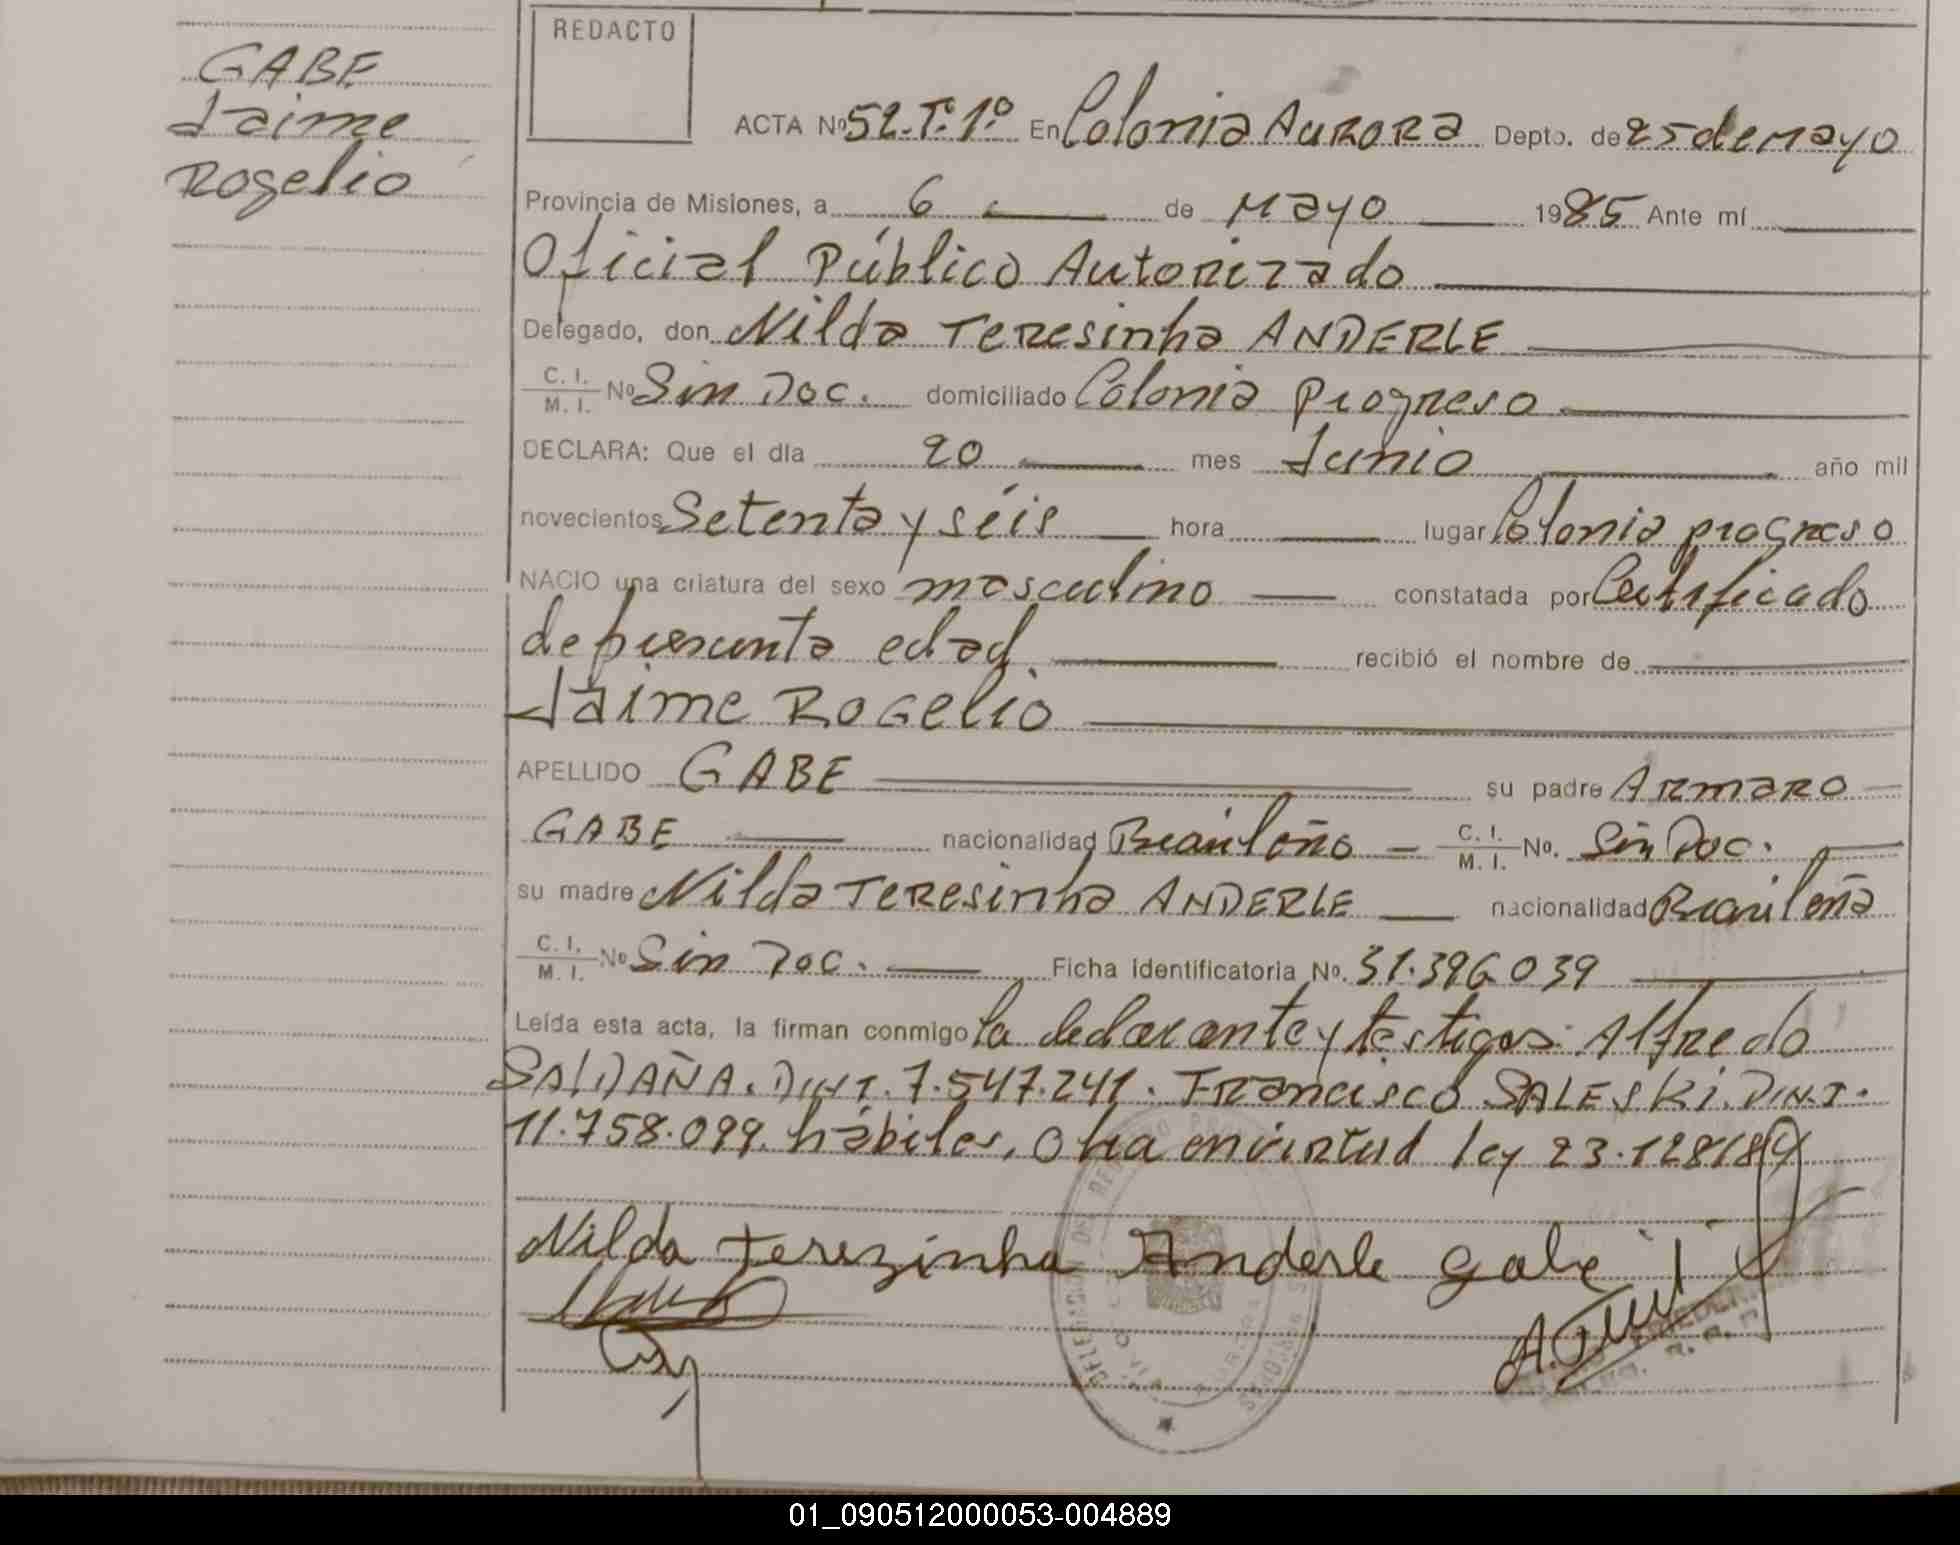 GABE
Jaime
Rogelio
REDACTO
ACTA Nº 52.Tº.1º En Colonia Aurora Depto. de 25 de Mayo
Provincia de Misiones, a 6 de Mayo 1985 Ante mí
Oficial Público Autorizado
Delegado, don Nilda Teresinha ANDERLE
C. I.
M. I. Nº Sin Doc. domiciliado Colonia Progreso
DECLARA: Que el día 20 mes Junio año mil
novecientos Setenta y séis hora lugar Colonia progreso
NACIO una criatura del sexo masculino constatada por Certificado
de presunta edad recibió el nombre de
Jaime Rogelio
APELLIDO GABE su padre Armaro
GABE nacionalidad Brasileño C. I.
M. I. No. Sin Doc.
su madre Nilda Teresinha ANDERLE nacionalidad Brasileña
C. I.
M. I. Nº Sin Doc. Ficha identificatoria No. 31.396.039
Leída esta acta, la firman conmigo la declarante y testigos: Alfredo
SALDAÑA. D.N.I. 7.547.241. Francisco SALESKI. D.N.I.
11.758.099. hábiles. en virtud ley 23.128/84
Nilda Terezinha Anderle Gabe